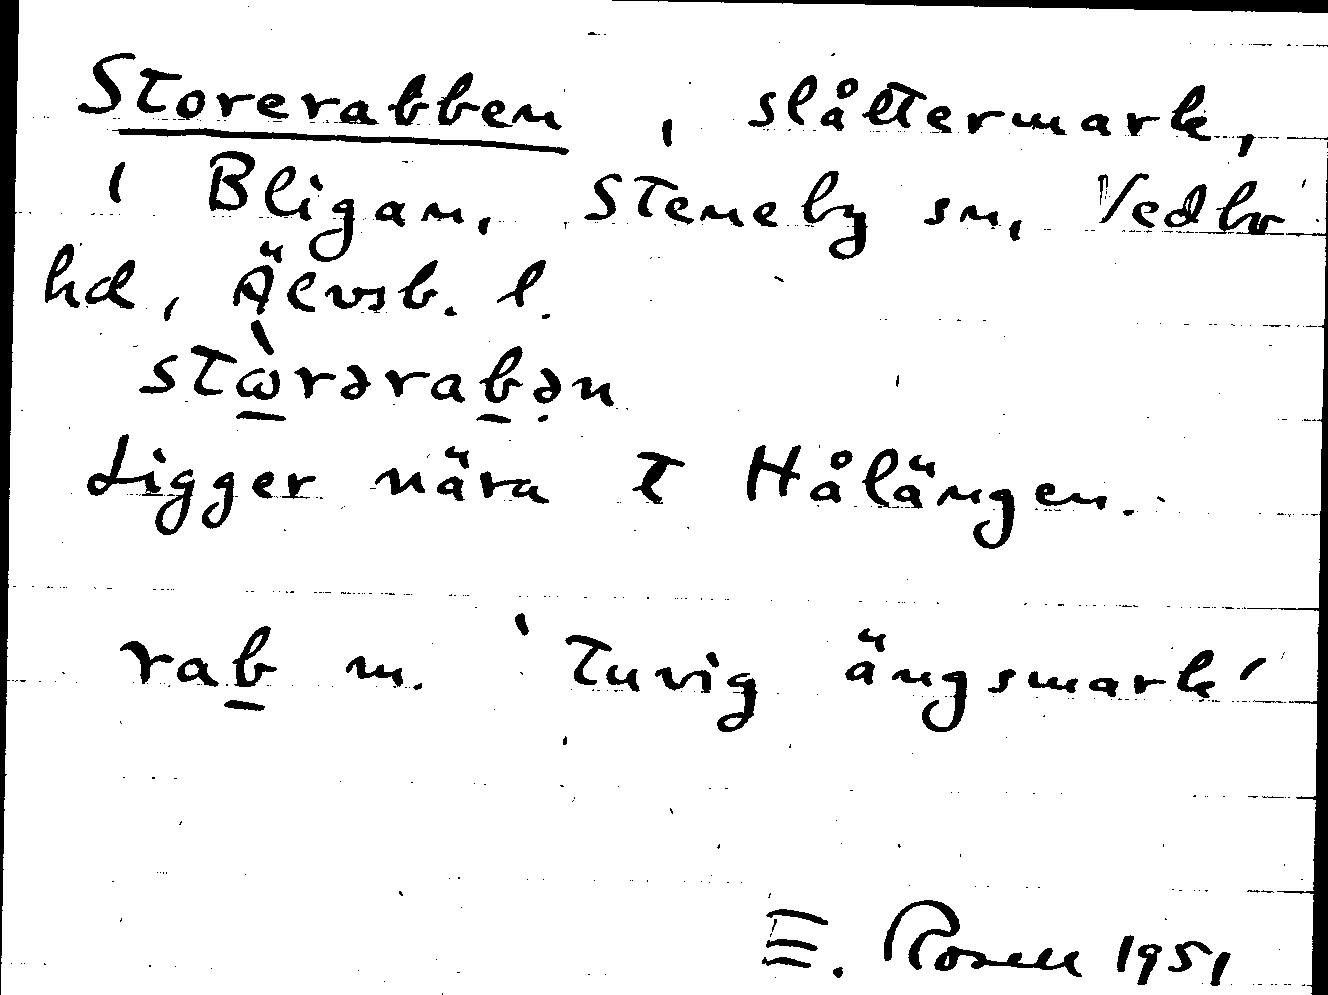 Storerabben, slåttermark,
i Bligan, Steneby sn, Vedbo
hd, Älvsb. l.
stɷ̀rərab̲ən
Ligger nära t Hålängen.
rab̲ m. 'tuvig ängsmark'
E. Rosell 1951